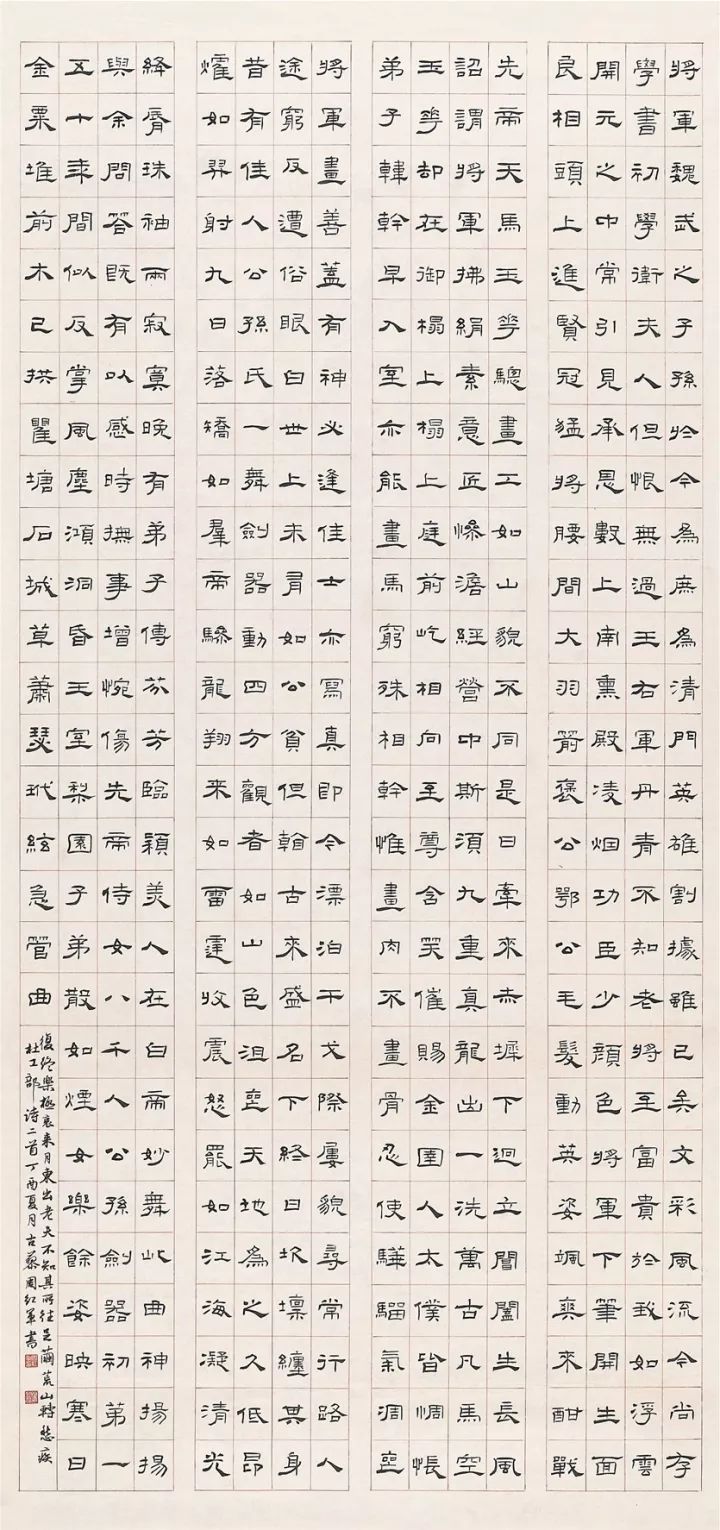 將軍魏武之子孫於今為庶為清門英雄割據雖已矣文彩風流今尚存
學書初學衛夫人但恨無過王右軍丹青不知老將至富貴於我如浮雲
開元之中常引見承恩數上南熏殿凌烟功臣少顏色將軍下筆開生面
良相頭上進賢冠猛將腰間大羽箭褒公鄂公毛髮動英姿颯爽來酣戰
先帝天馬玉華驄畫工如山貌不同是日牽來赤墀下迥立閶闔生長風
詔謂將軍拂絹素意匠慘澹經營中斯須九重真龍出一洗萬古凡馬空
玉華却在御榻上榻上庭前屹相向至尊含笑催賜金圉人太僕皆惆悵
弟子韓幹早入室亦能畫馬窮殊相幹惟畫肉不畫骨忍使驊騮氣凋喪
將軍畫善蓋有神必逢佳士亦寫真即今漂泊干戈際屢貌尋常行路人
途窮反遭俗眼白世上未有如公貧但翰古來盛名下終日坎壈纏其身
昔有佳人公孫氏一舞劍器動四方觀者如山色沮喪天地為之久低昂
燿如羿射九日落矯如羣帝驂龍翔來如雷霆收震怒罷如江海凝清光
絳脣珠袖兩寂寞晚有弟子傳芬芳臨穎美人在白帝妙舞此曲神揚揚
與余問答既有以感時撫事增惋傷先帝侍女八千人公孫劍器初第一
五十年間似反掌風塵澒洞昏王室梨園子弟散如煙女樂餘姿映寒日
金粟堆前木已拱瞿塘石城草蕭瑟玳絃急管曲
復終樂極哀來月東出老夫不知其所往足繭荒山轉愁疾
杜工部詩二首丁酉夏月古蔡周紅軍書